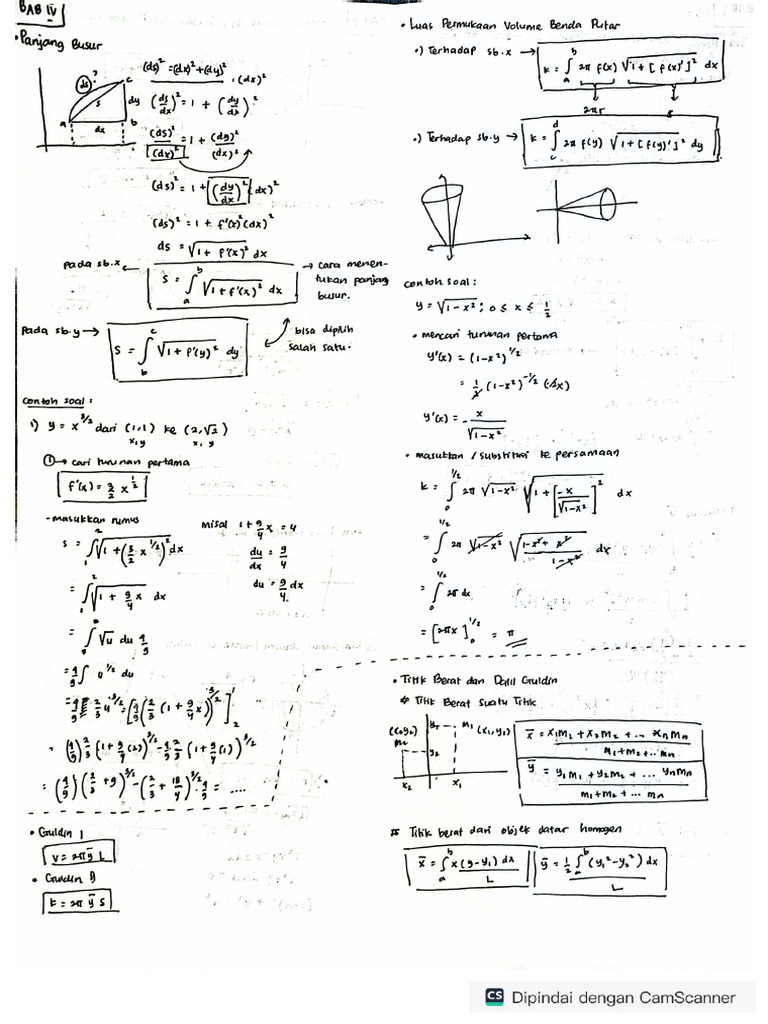 BAB IV
• Panjang Busur
(ds)² = (dx)² + (dy)² : (dx)²
ds ?
s
a b c
dx
dy
(ds/dx)² = 1 + (dy/dx)²
(ds)²/(dx)² = 1 + (dy)²/(dx)²
(ds)² = 1 + (dy/dx)² (dx)²
(ds)² = 1 + f'(x)² (dx)²
ds = √(1 + f'(x)²) dx
Pada sb.x ← s = ∫_a^b √(1 + f'(x)²) dx → cara menen-
tukan panjang
busur.
Pada sb.y → S = ∫_b^c √(1 + f'(y)²) dy
bisa dipilih
salah satu.
contoh soal :
1) y = x^(3/2) dari (1,1) ke (2,√2)
x,y x,y
① → cari turunan pertama
f'(x) = 3/2 x^(1/2)
- masukkan rumus
s = ∫_1^2 √(1 + (3/2 x^(1/2))²) dx
= ∫_1^2 √(1 + 9/4 x) dx
= ∫ √u du 4/9
= 4/9 ∫ u^(1/2) du
misal 1 + 9/4 x = u
du/dx = 9/4
du = 9/4 dx
= 4/9 · 2/3 u^(3/2) = [4/9 (2/3 (1 + 9/4 x)^(3/2))]_2^1
= (4/9) 2/3 (1 + 9/4 (2))^(3/2) - 4/9 · 2/3 (1 + 9/4 (1))^(3/2)
= (4/9) (2/3 + 9)^(3/2) - (2/3 + 18/4)^(3/2) · 4/9 = ....
• Guldin I
V = 2π ȳ L
• Guldin II
k = 2π ȳ s
• Luas Permukaan Volume Benda Putar
•) Terhadap sb.x → k = ∫_a^b 2π f(x) √(1 + [f(x)']²) dx
2πr s
•) Terhadap sb.y → k = ∫_c^d 2π f(y) √(1 + [f(y)']²) dy
contoh soal :
y = √(1-x²) ; 0 ≤ x ≤ 1/2
• mencari turunan pertama
y'(x) = (1-x²)^(1/2)
= 1/2 (1-x²)^(-1/2) (-2x)
y'(x) = - x/√(1-x²)
• masukkan / substitusi ke persamaan
k = ∫_0^(1/2) 2π √(1-x²) √(1 + [-x/√(1-x²)]²) dx
= ∫_0^(1/2) 2π √(1-x²) √((1-x²+x²)/(1-x²)) dx
= ∫_0^(1/2) 2π dx
= [2πx]_0^(1/2) = π
• Titik Berat dan Dalil Guldin
# Titik Berat Suatu Titik
(x₂,y₂)
m₂
y₁
m₁ (x₁,y₁)
y₂
x₂ x₁
x̄ = (x₁m₁ + x₂m₂ + ... xₙmₙ)/(m₁+m₂+... mₙ)
ȳ = (y₁m₁ + y₂m₂ + ... yₙmₙ)/(m₁+m₂+... mₙ)
# Titik berat dari objek datar homogen
x̄ = ∫_a^b x(y-y₁) dx / L
ȳ = 1/2 ∫_a^b (y₁²-y₂²) dx / L
CS Dipindai dengan CamScanner